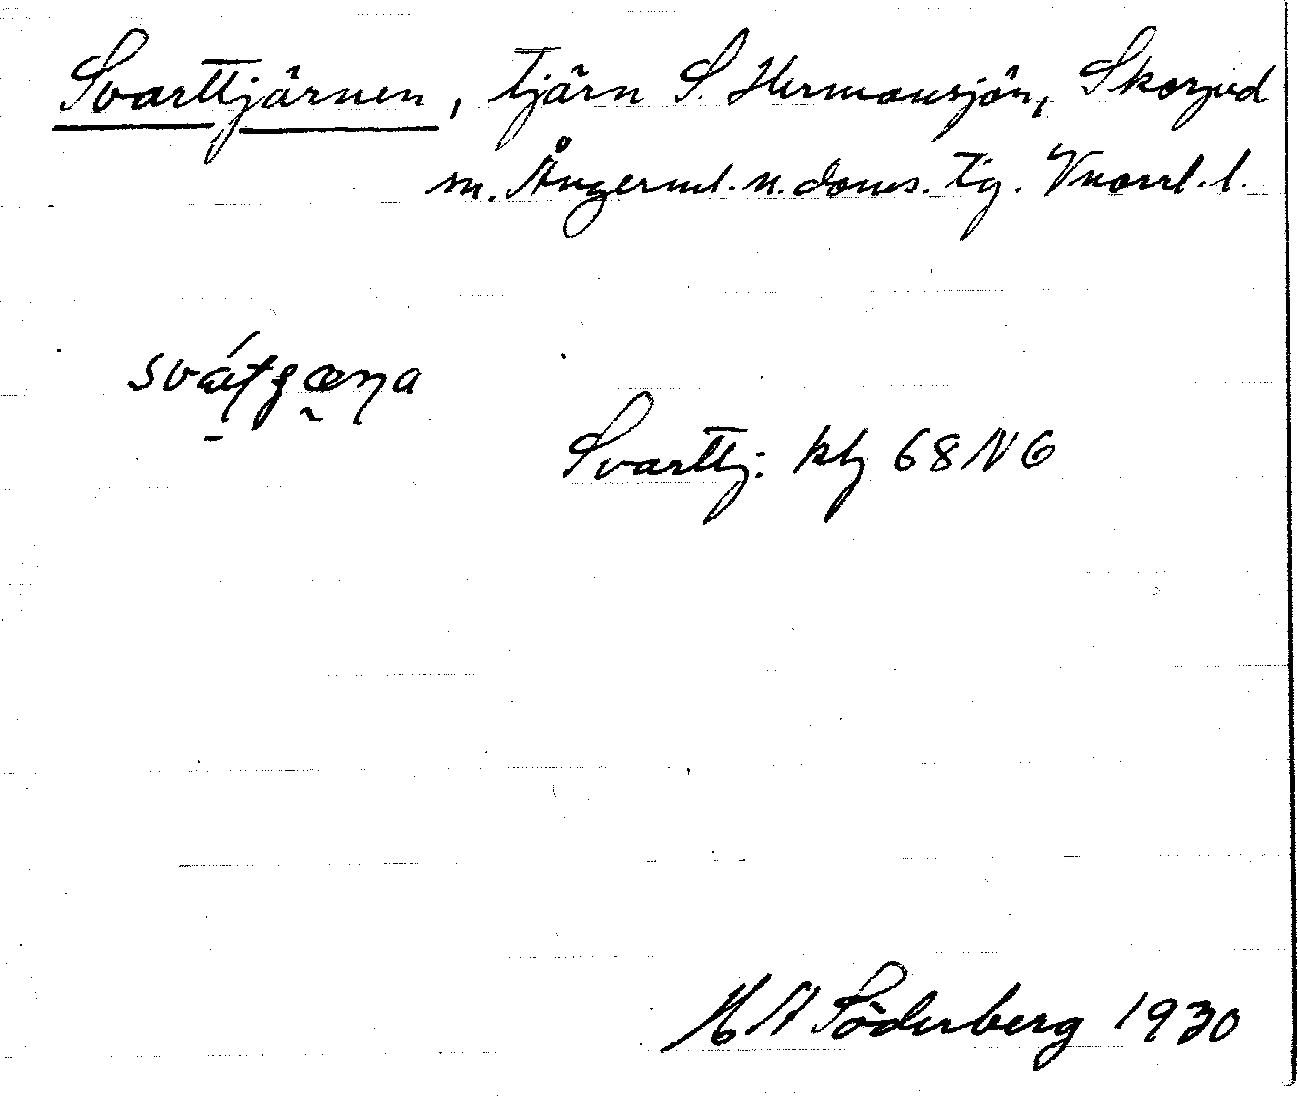 Svarttjärnen, tjärn S. Hermansjön, Skorped
sn. Ångerml. n. doms. tg. Vnorrl. l.
svátgæṇa
Svarttj: kbl 68 NO
H A Söderberg 1930